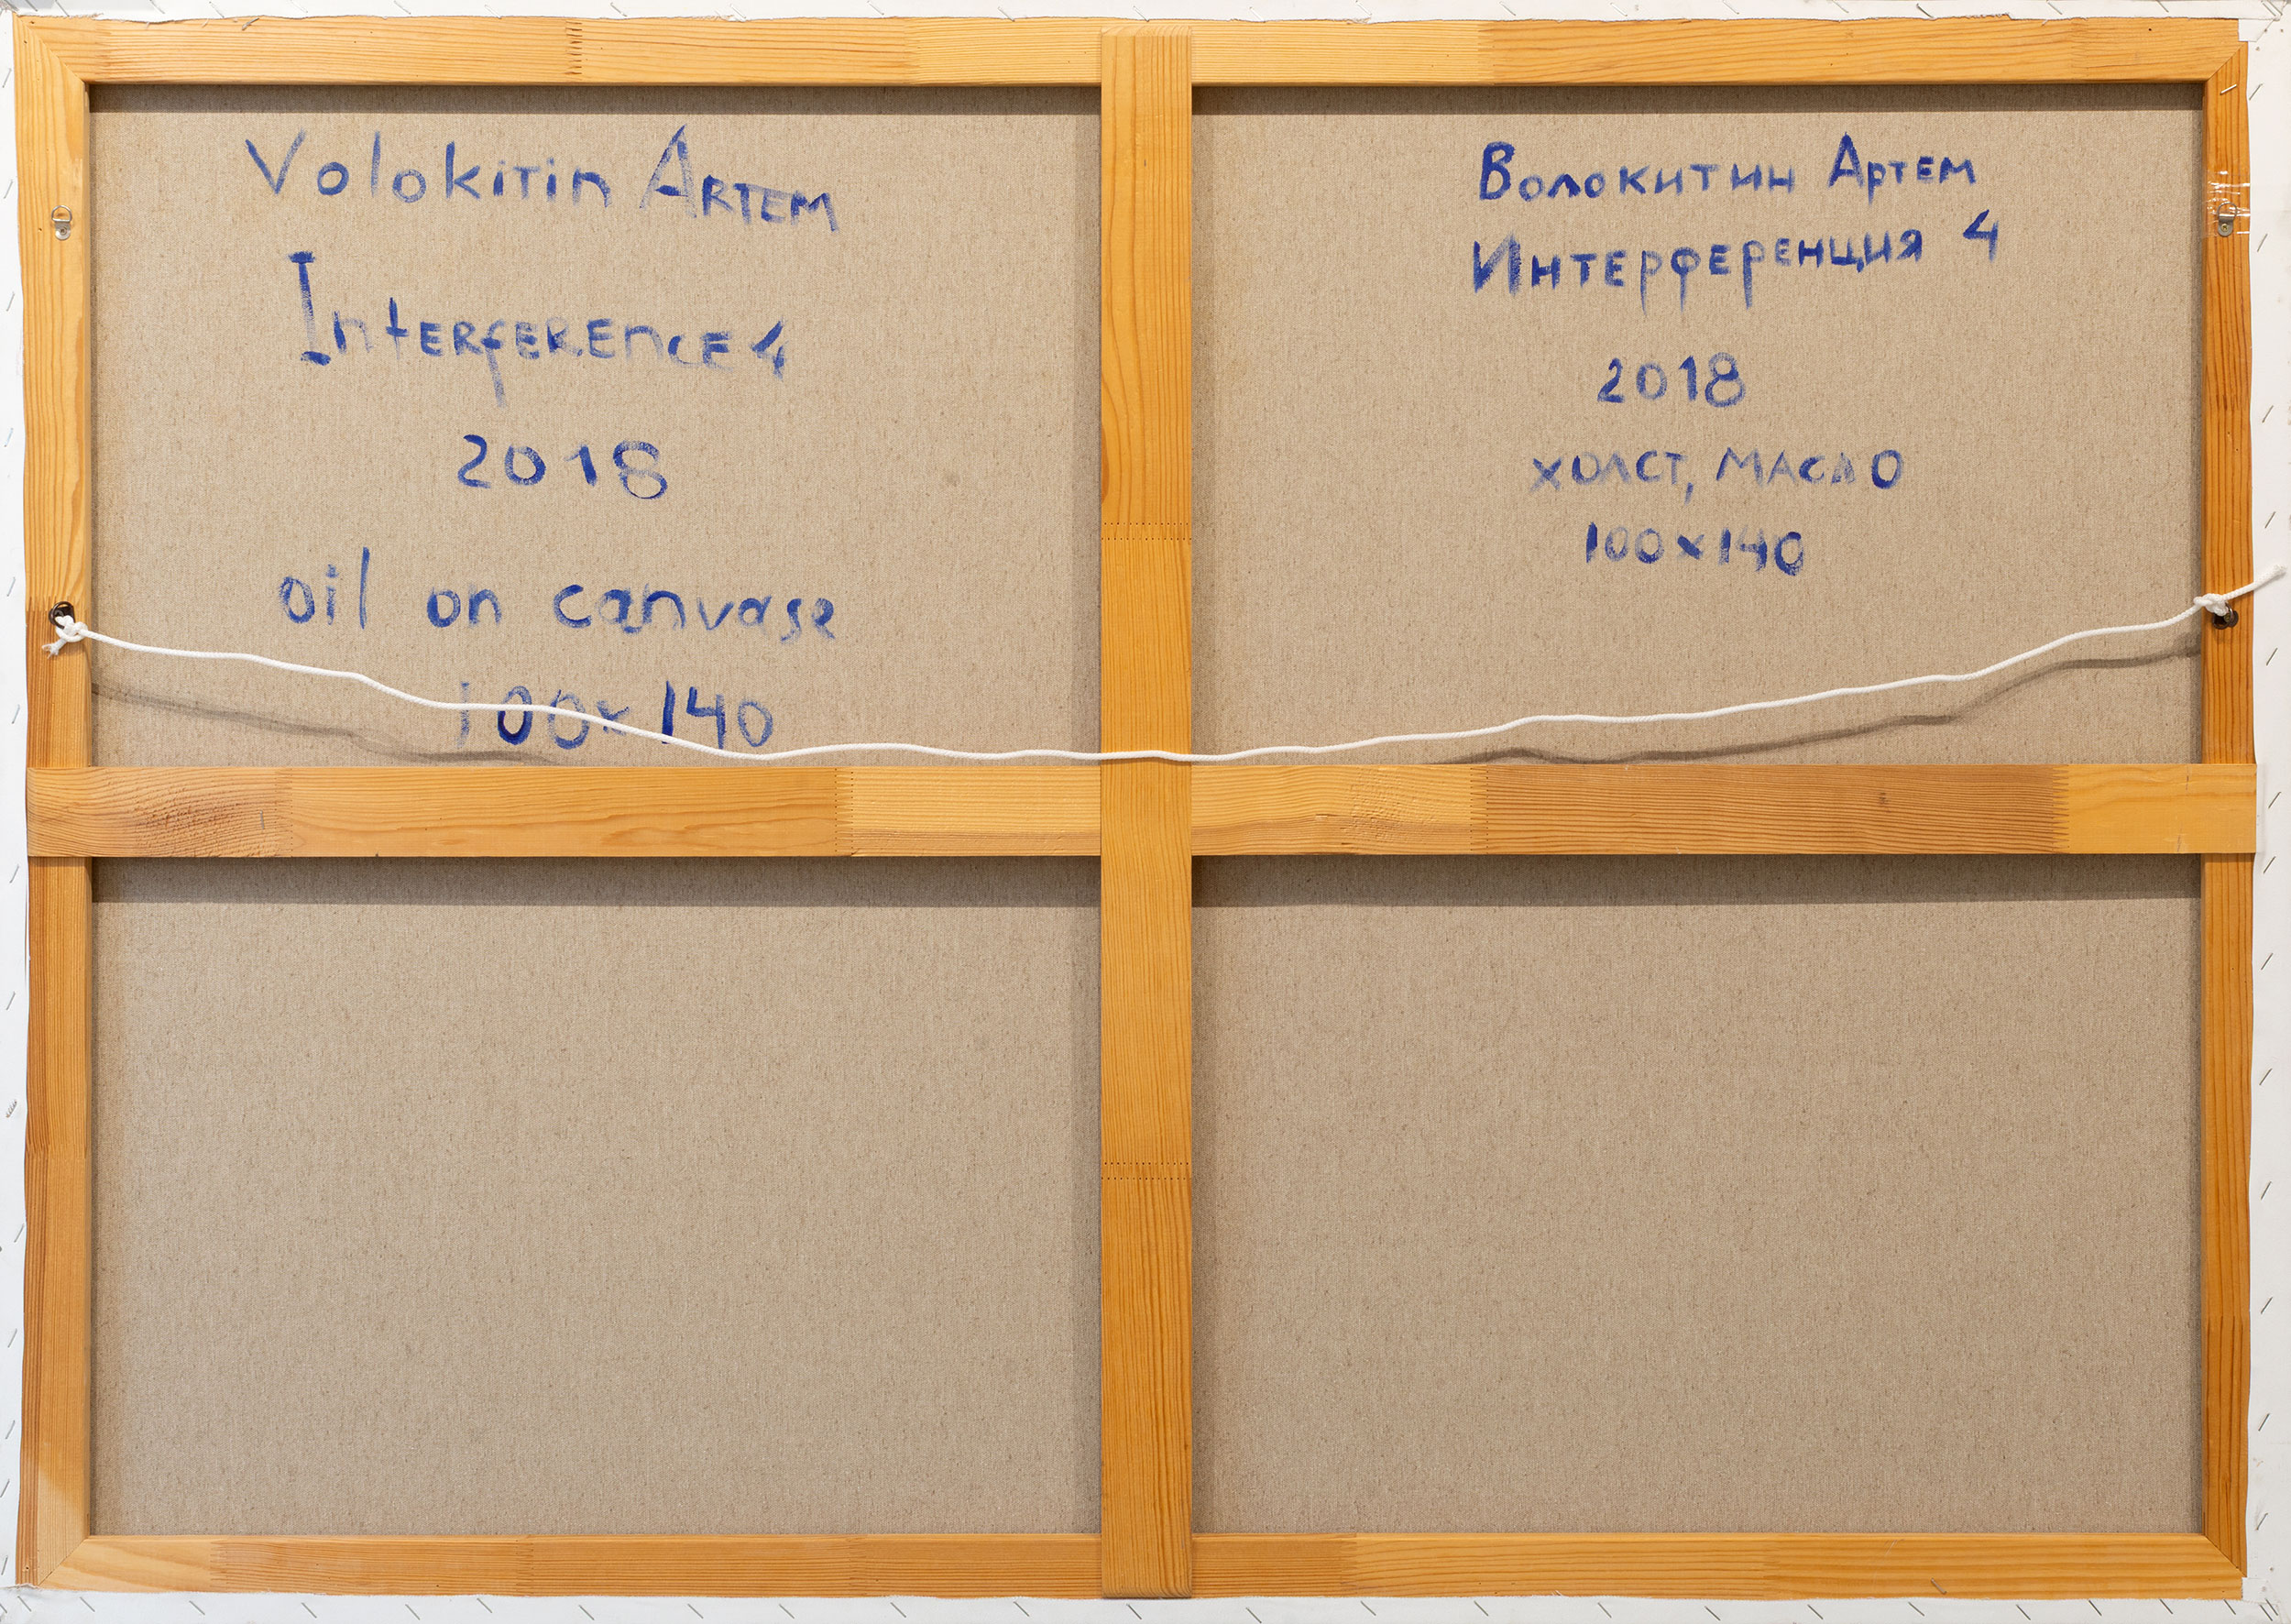 Volokitin Artem
Interference 4
2018
oil on canvase
100x140
Волокитин Артем
Интерференция 4
2018
холст, масло
100x140